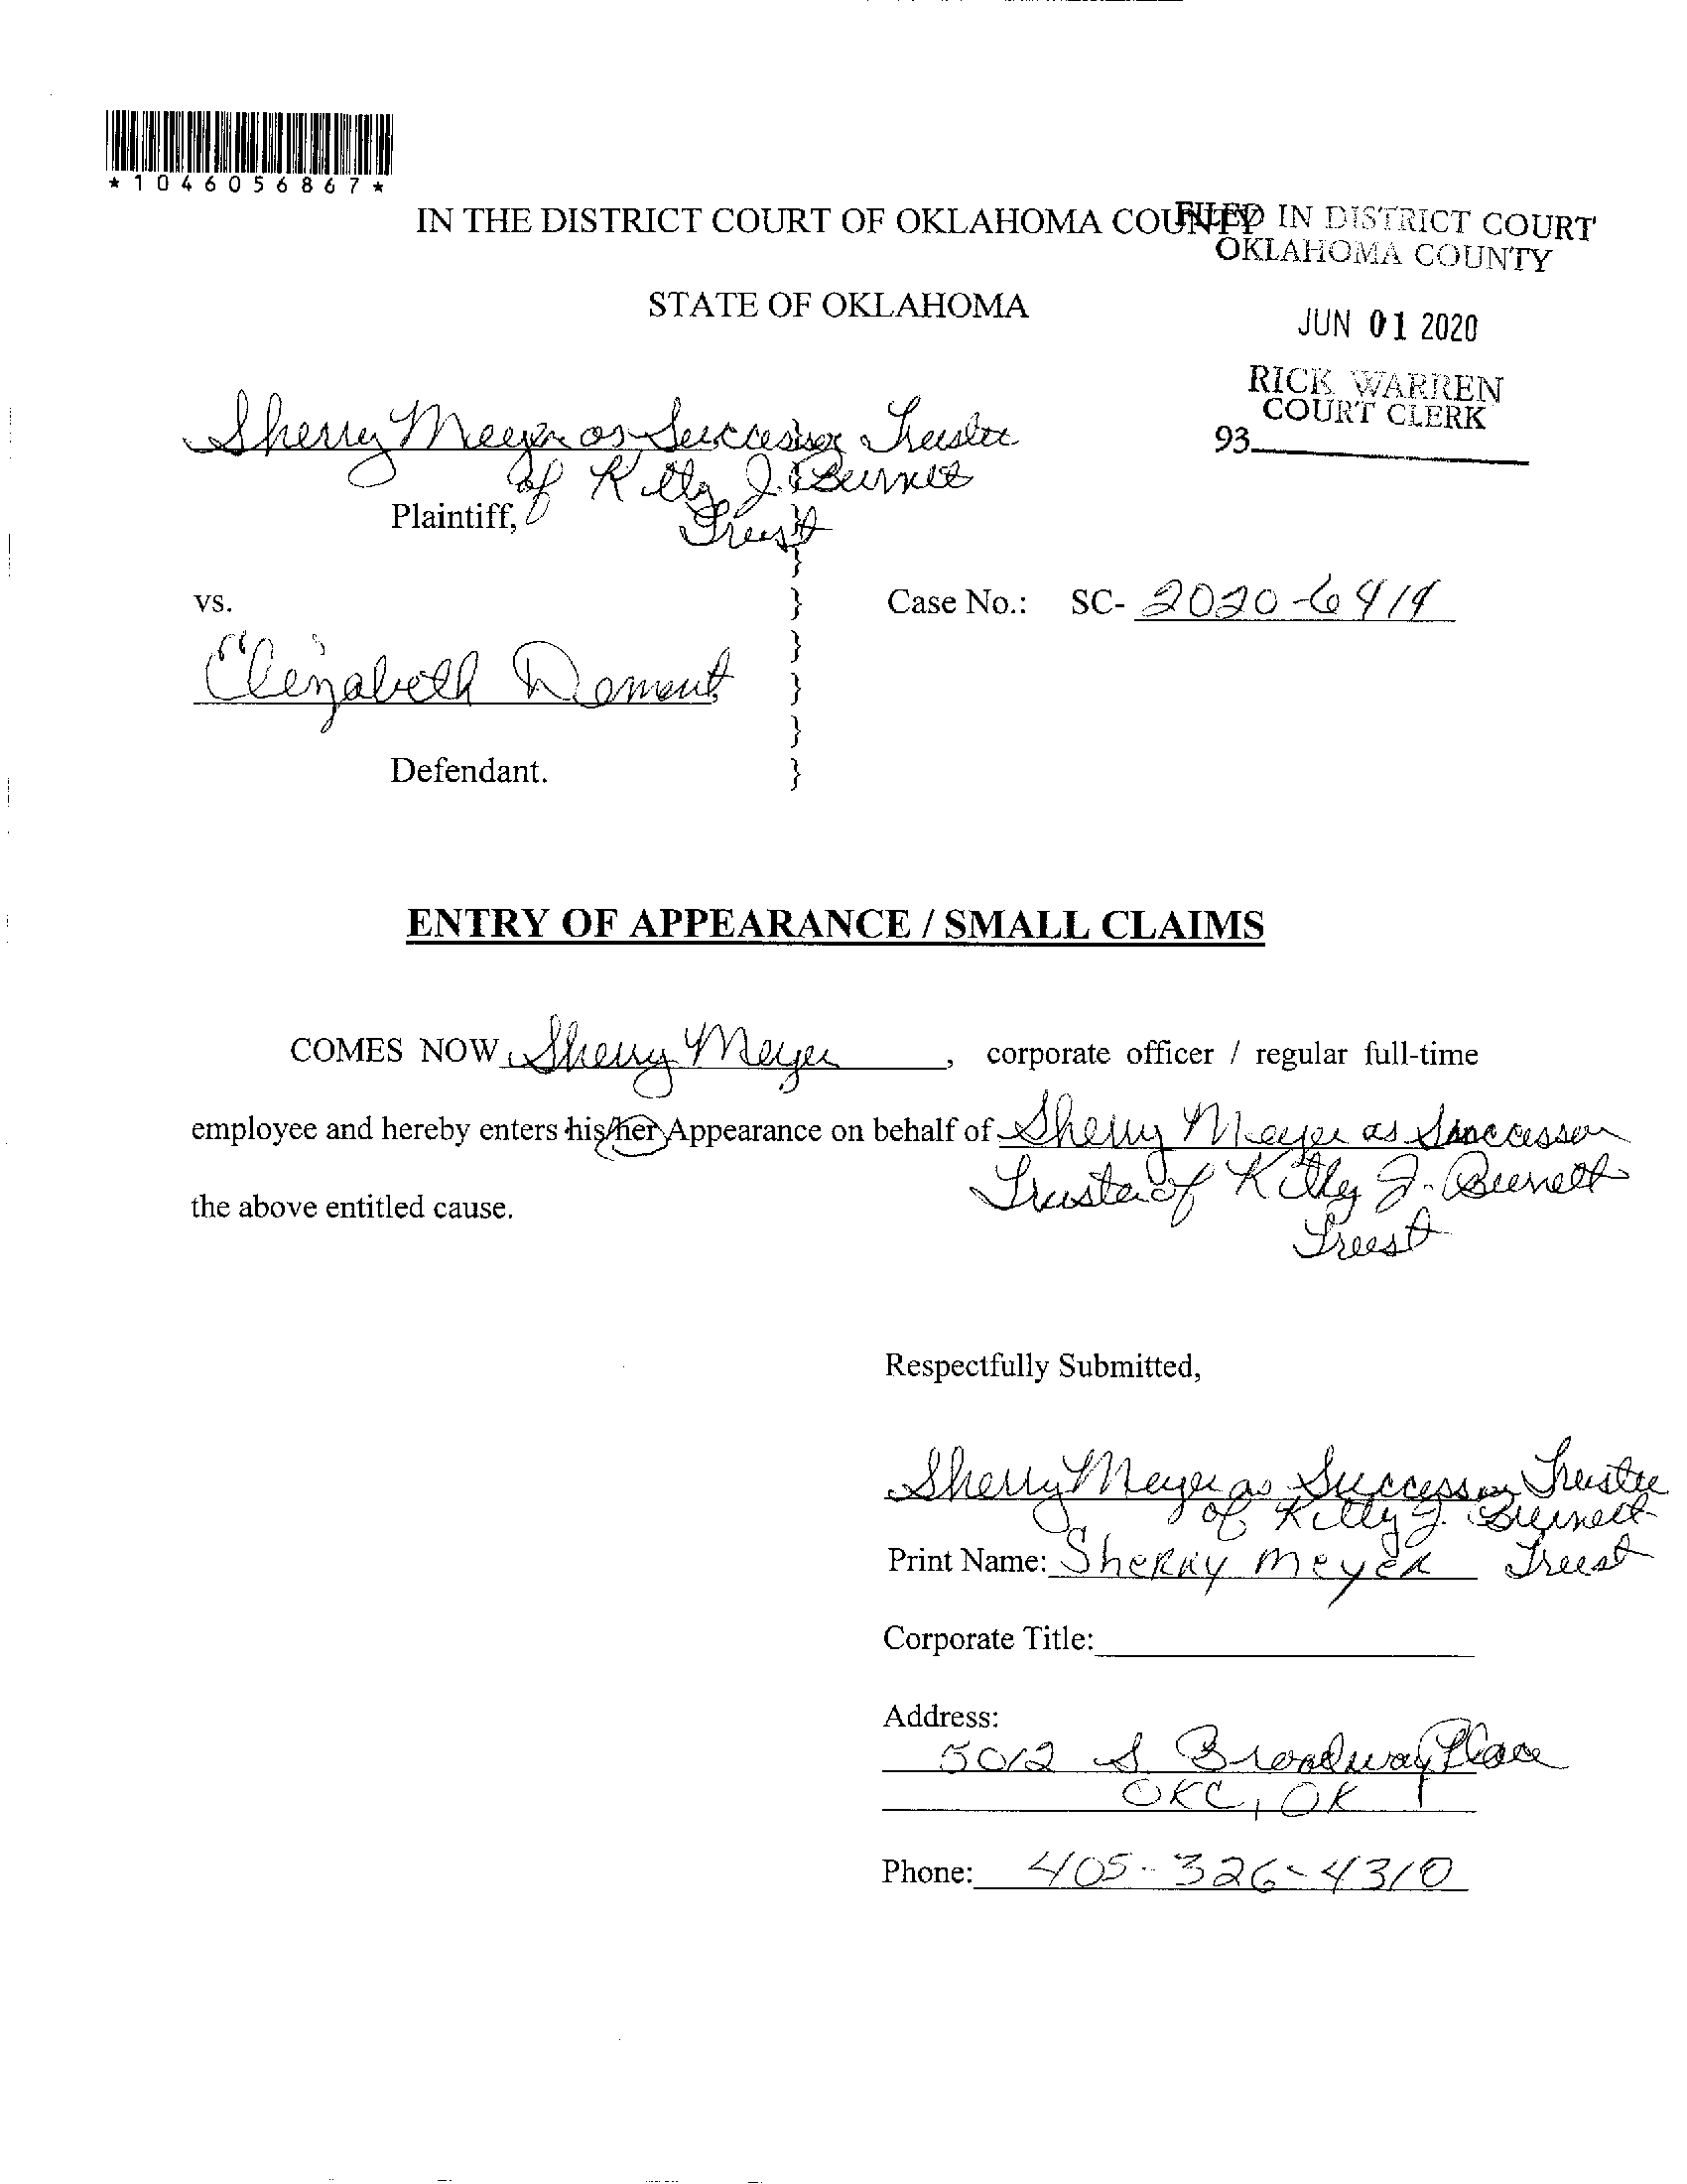 *1046056867*
IN THE DISTRICT COURT OF OKLAHOMA COUNTY
FILED IN DISTRICT COURT
OKLAHOMA COUNTY
STATE OF OKLAHOMA
JUN 01 2020
RICK WARREN
COURT CLERK
93
Sherry Meyer as Successor Trustee
of Kitty J. Burnett
Plaintiff,
Trust
}
vs.
} Case No.: SC- 2020-6414
}
Elizabeth Dement
}
}
Defendant.
}
ENTRY OF APPEARANCE / SMALL CLAIMS
COMES NOW Sherry Meyer, corporate officer / regular full-time
employee and hereby enters his/her Appearance on behalf of Sherry Meyer as Successor
Trustee of Kitty J. Burnett
the above entitled cause.
Trust
Respectfully Submitted,
Sherry Meyer as Successor Trustee
of Kitty J. Burnett
Print Name: Sherry Meyer Trust
Corporate Title:
Address:
5012 S Broadway Place
OKC, OK
Phone: 405-326-4310